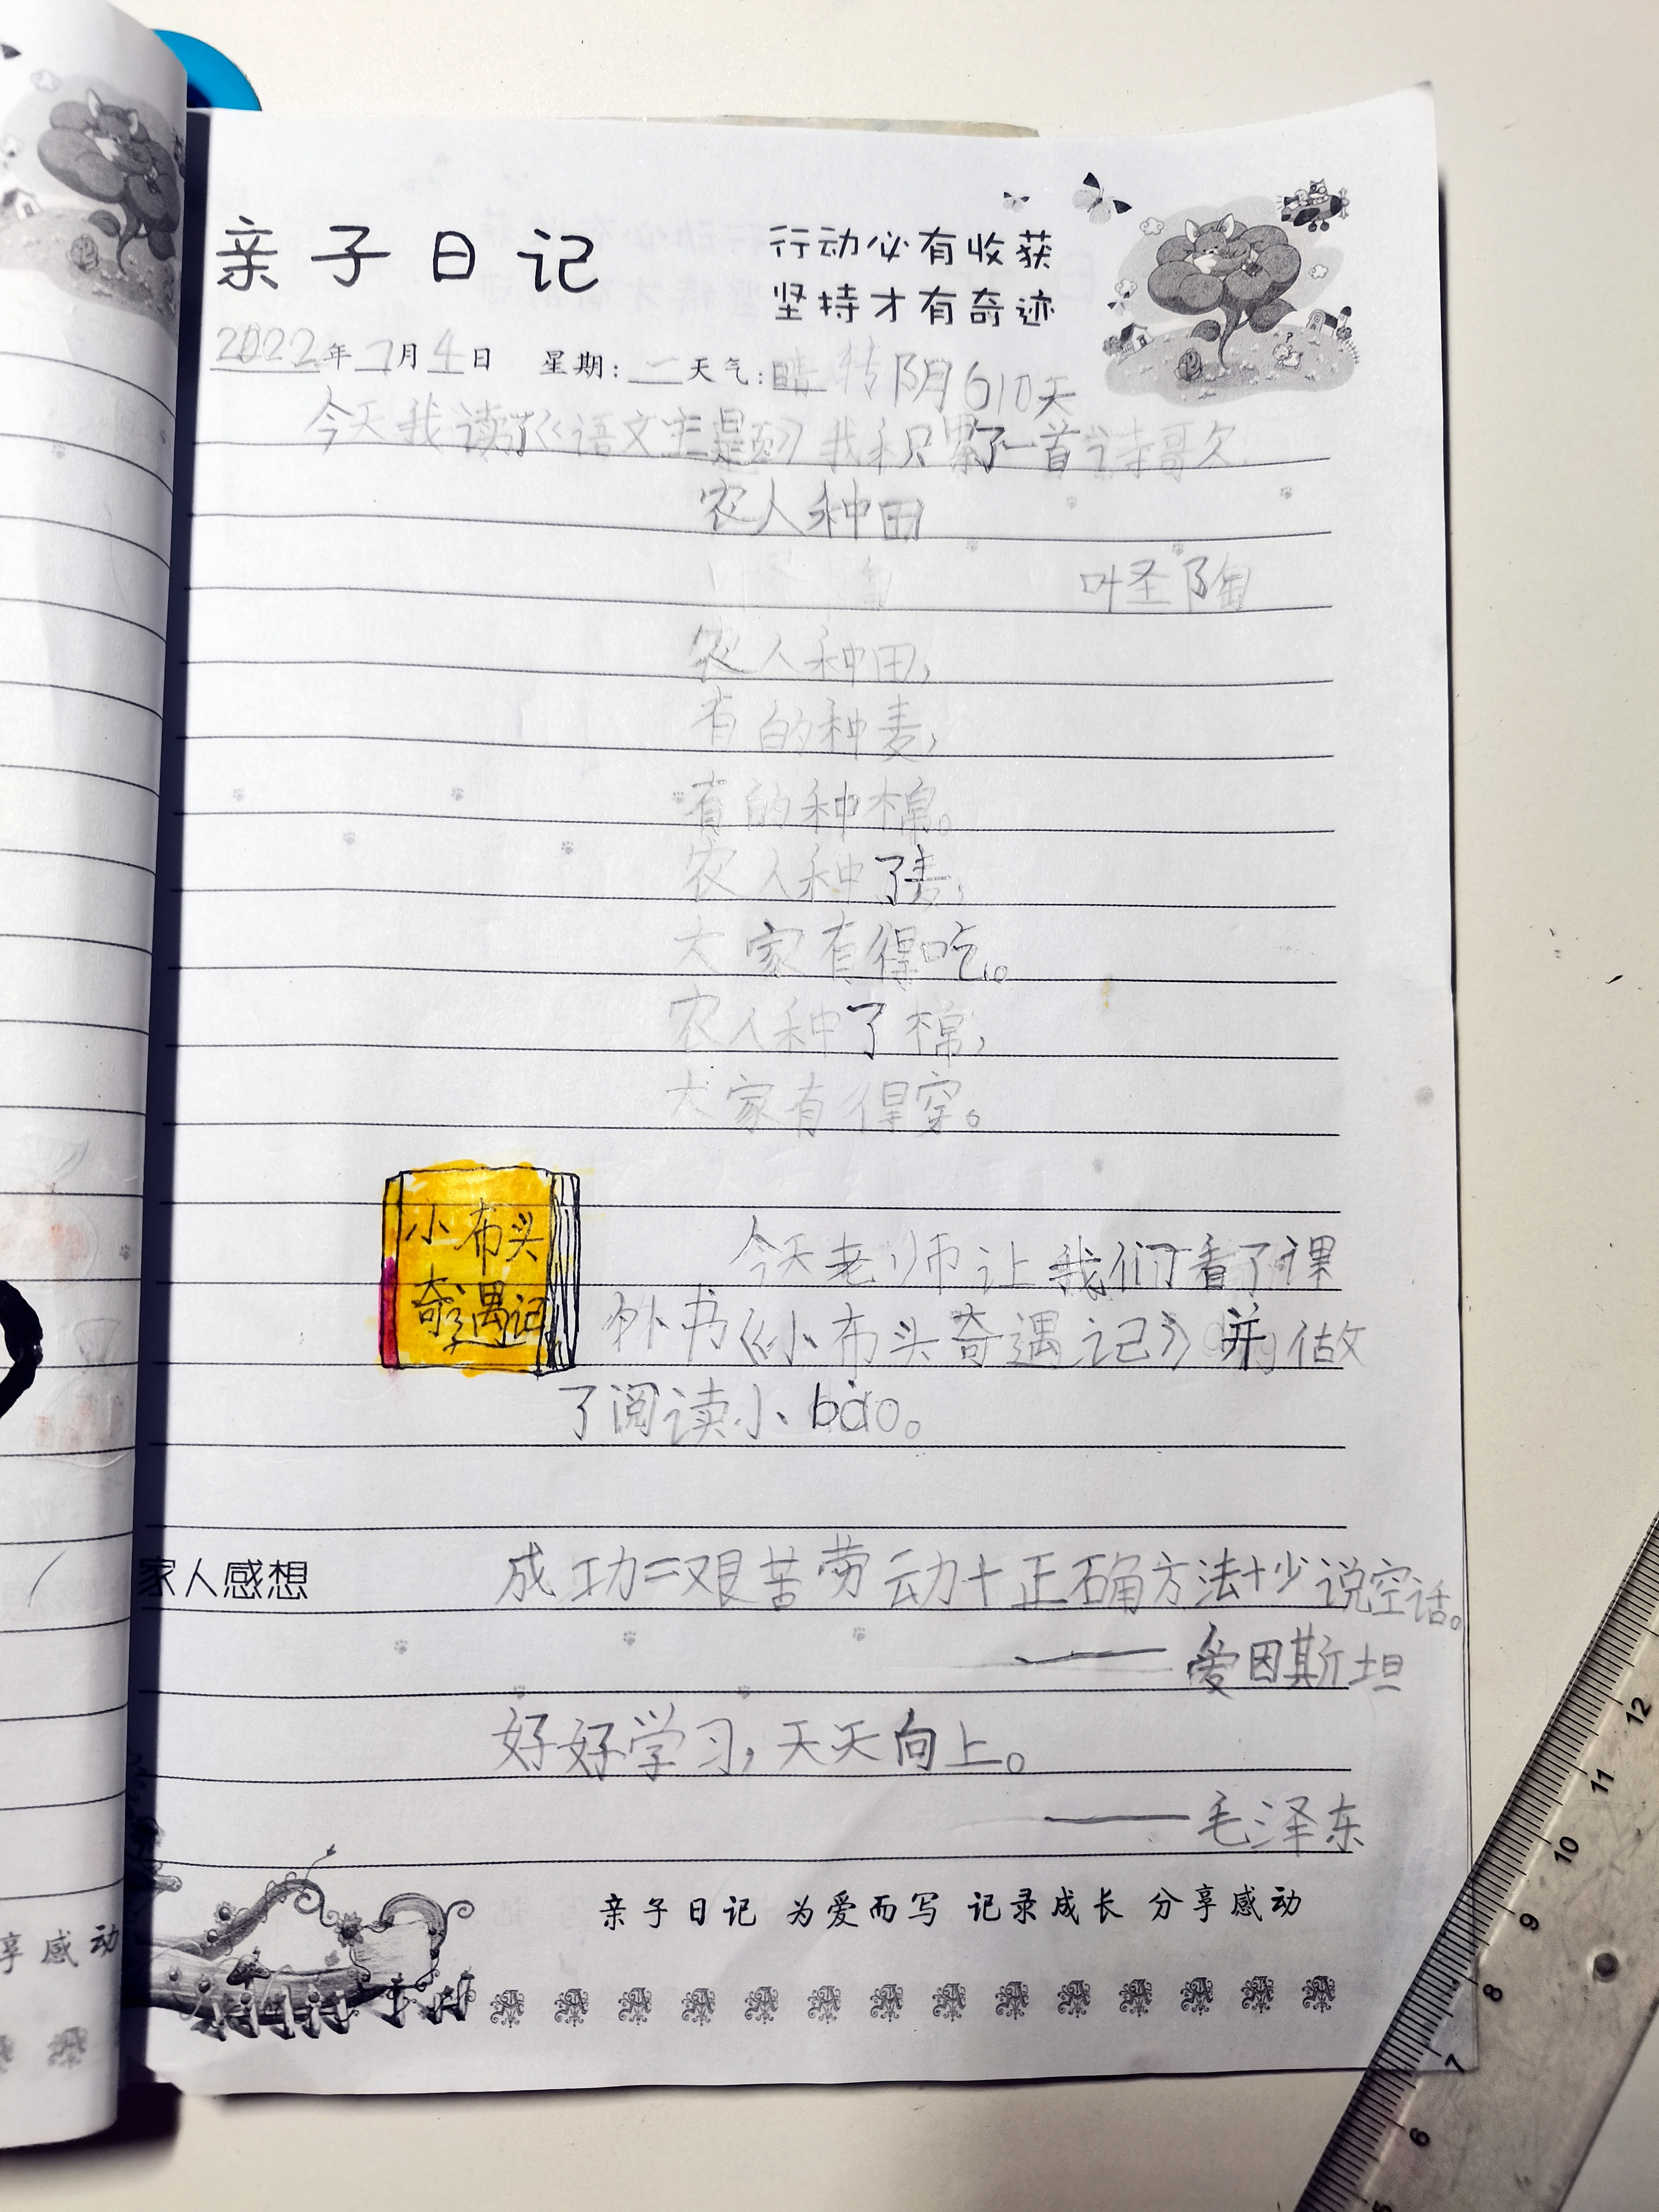 亲子日记
行动必有收获
坚持才有奇迹
2022年 7月4日 星期:二 天气:晴转阴 610天
今天我读了《语文主题》我积累了一首诗哥欠
农人种田
叶圣陶
农人种田,
有的种麦,
有的种棉。
农人种了麦,
大家有得吃。
农人种了棉,
大家有得穿。
小布头
奇遇记
今天老师让我们看了课
外书《小布头奇遇记》并做
了阅读小bào。
家人感想
成功=艰苦劳动+正确方法+少说空话。
——爱因斯坦
好好学习,天天向上。
——毛泽东
亲子日记 为爱而写 记录成长 分享感动
享感动
12
11
10
9
8
7
6
5